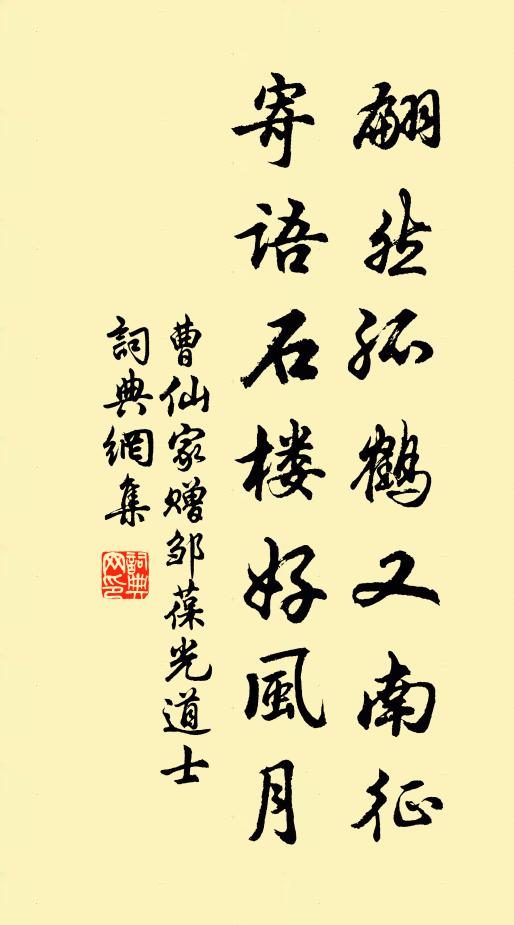 翩然孤鹤又南征
寄语石楼好風月
曹仙家赠邹葆光道士
詞典網集
詞典網印